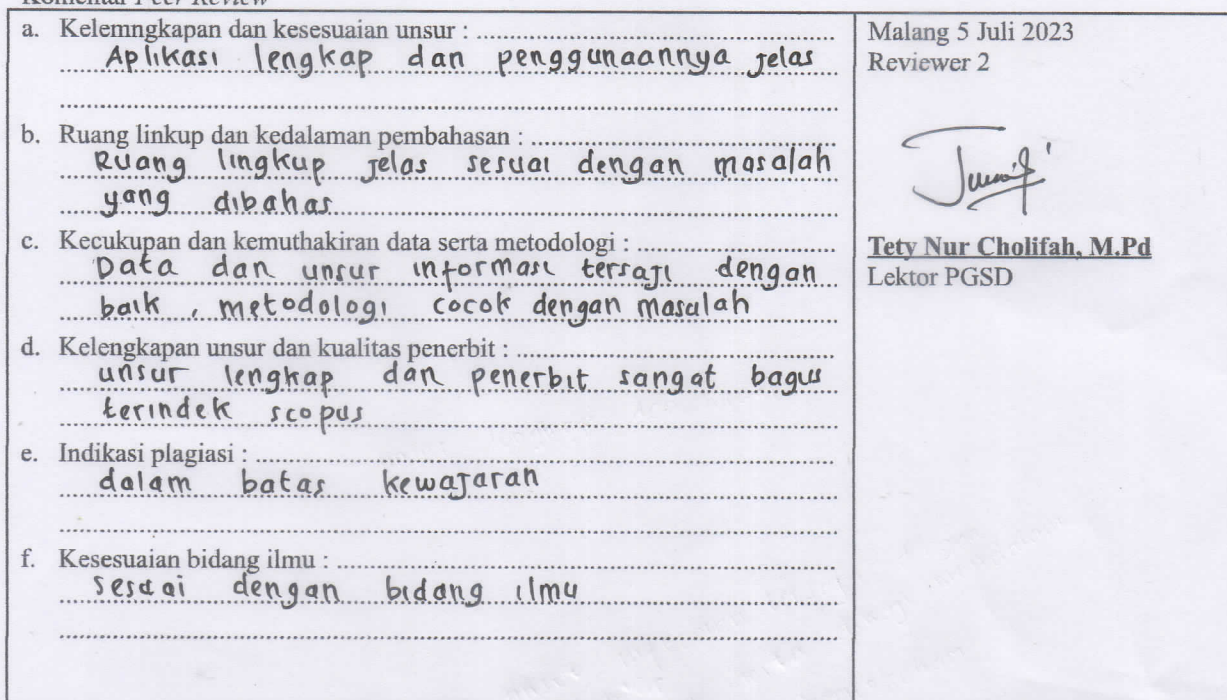 Komentar Peer Review
a. Kelemngkapan dan kesesuaian unsur :
Aplikasi lengkap dan penggunaannya jelas
b. Ruang linkup dan kedalaman pembahasan :
Ruang lingkup jelas sesuai dengan masalah
yang dibahas
c. Kecukupan dan kemuthakiran data serta metodologi :
Data dan unsur informasi tersaji dengan
baik , metodologi cocok dengan masalah
d. Kelengkapan unsur dan kualitas penerbit :
unsur lengkap dan penerbit sangat bagus
terindek scopus
e. Indikasi plagiasi :
dalam batas kewajaran
f. Kesesuaian bidang ilmu :
Sesuai dengan bidang ilmu
Malang 5 Juli 2023
Reviewer 2
Tety Nur Cholifah, M.Pd
Lektor PGSD